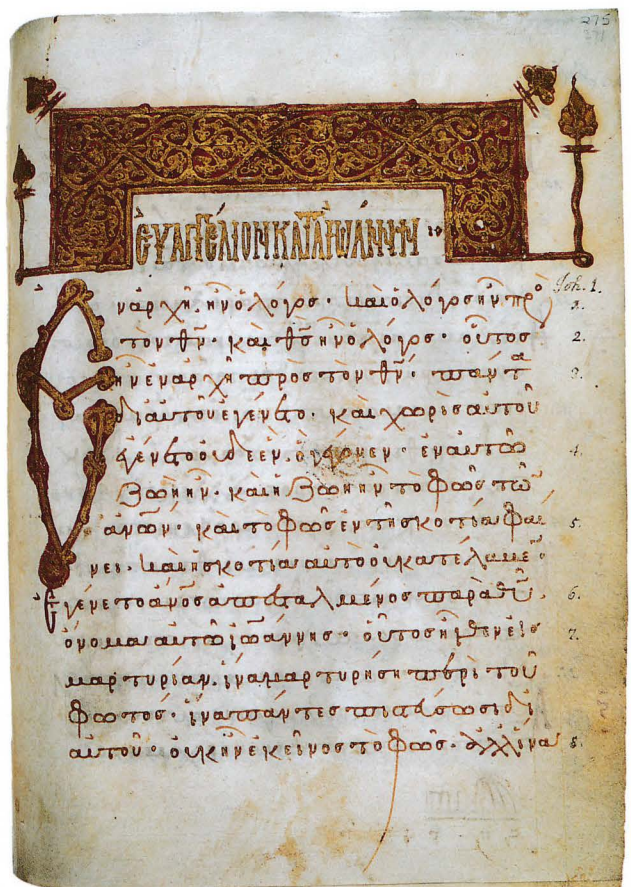 275
371
ΕΥΑΓΓΕΛΙΟΝ ΚΑΤΑ ΙΩΑΝΝΗΝ
Joh. 1.
Ἐν ἀρχῇ ἦν ὁ λόγος· καὶ ὁ λόγος ἦν πρὸ 1.
τὸν θν· καὶ θς ἦν ὁ λόγος· οὗτος 2.
ἦν ἐν ἀρχῇ πρὸς τὸν θν· πάντα 3.
δι αὐτοῦ ἐγένετο· καὶ χωρὶς αὐτοῦ
ἐγένετο οὐδὲ ἕν. ὃ γέγονεν· ἐν αὐτῶ 4.
ζωὴ ἦν· καὶ ἡ ζωὴ ἦν τὸ φῶς τῶ
ἀνων· καὶ τὸ φῶς ἐν τῇ σκοτία φαί 5.
νει· καὶ ἡ σκοτία αὐτὸ οὐ κατέλαβεν·
Ἐγένετο ἀνος ἀπεσταλμένος παρὰ θυ· 6.
ὄνομα αὐτῶ ἰωάννης· οὗτος ἦλθεν εἰς 7.
μαρτυρίαν. ἵνα μαρτυρήση περὶ τοῦ
φωτός· ἵνα πάντες πιστεύσωσι δι
αὐτοῦ· οὐκ ἦν ἐκεῖνος τὸ φῶς· ἀλλ ἵνα 8.